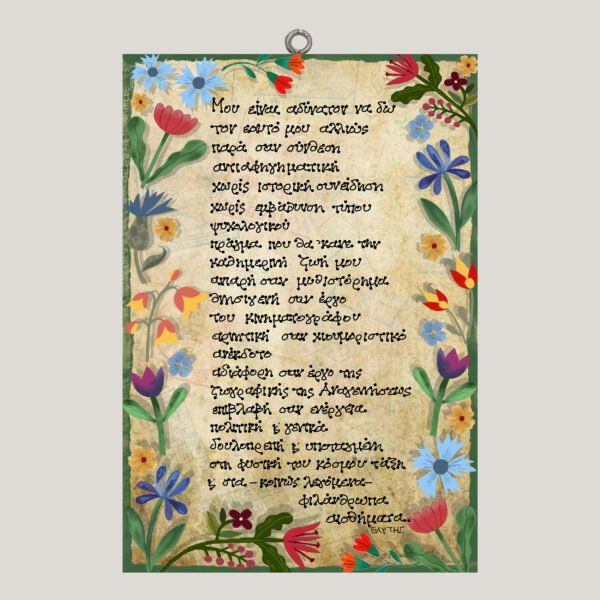 Μου είναι αδύνατον να δω
τον εαυτό μου αλλιώς
παρά σαν σύνθεση
αντιαφηγηματική
χωρίς ιστορική συνείδηση
χωρίς εμβάθυνση τύπου
ψυχολογικού
πράγμα που θα 'κανε την
καθημερινή ζωή μου
απαρή σαν μυθιστόρημα
θνησιγενή σαν έργο
του κινηματογράφου
αρνητική σαν χιουμοριστικό
ανέκδοτο
αδιάφορη σαν έργο της
ζωγραφικής της Αναγεννήσεως
επιβλαβή σαν ενέργεια
πολιτική ϗ γενικά
δουλοπρεπή ϗ υποταγμένη
στη φυσική του κόσμου τάξη
ϗ στα -κοινώς λεγόμενα-
φιλάνθρωπα
αισθήματα..
ΕΛΥΤΗΣ